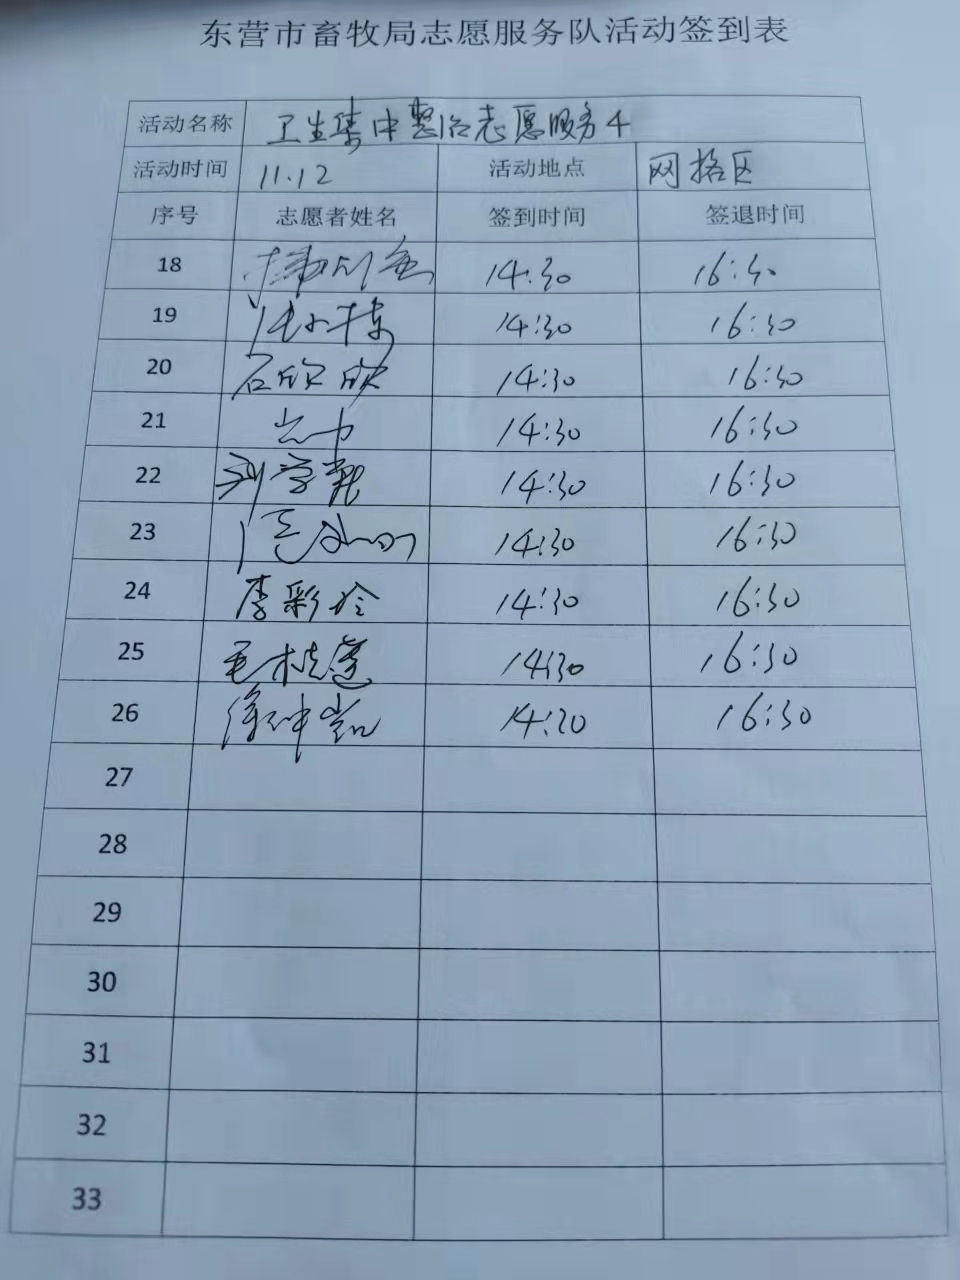 东营市畜牧局志愿服务队活动签到表
活动名称 卫生集中整治志愿服务4
活动时间 11.12 活动地点 网格区
序号 志愿者姓名 签到时间 签退时间
18 14:30 16:30
19 14:30 16:30
20 石欣欣 14:30 16:30
21 14:30 16:30
22 14:30 16:30
23 14:30 16:30
24 李彩玲 14:30 16:30
25 14:30 16:30
26 14:20 16:30
27
28
29
30
31
32
33